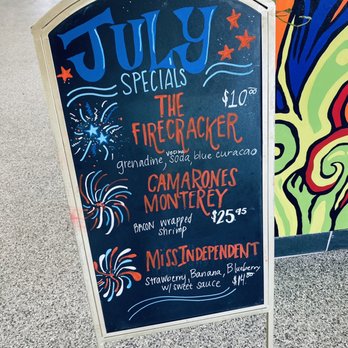 JULY
SPECIALS
THE $10.00
FIRECRACKER
vodka
grenadine, soda, blue curacao
CAMARONES
MONTEREY
BACON wrapped $25.95
shrimp
MISS INDEPENDENT
Strawberry, Banana, Blueberry
w/ sweet sauce $14.00